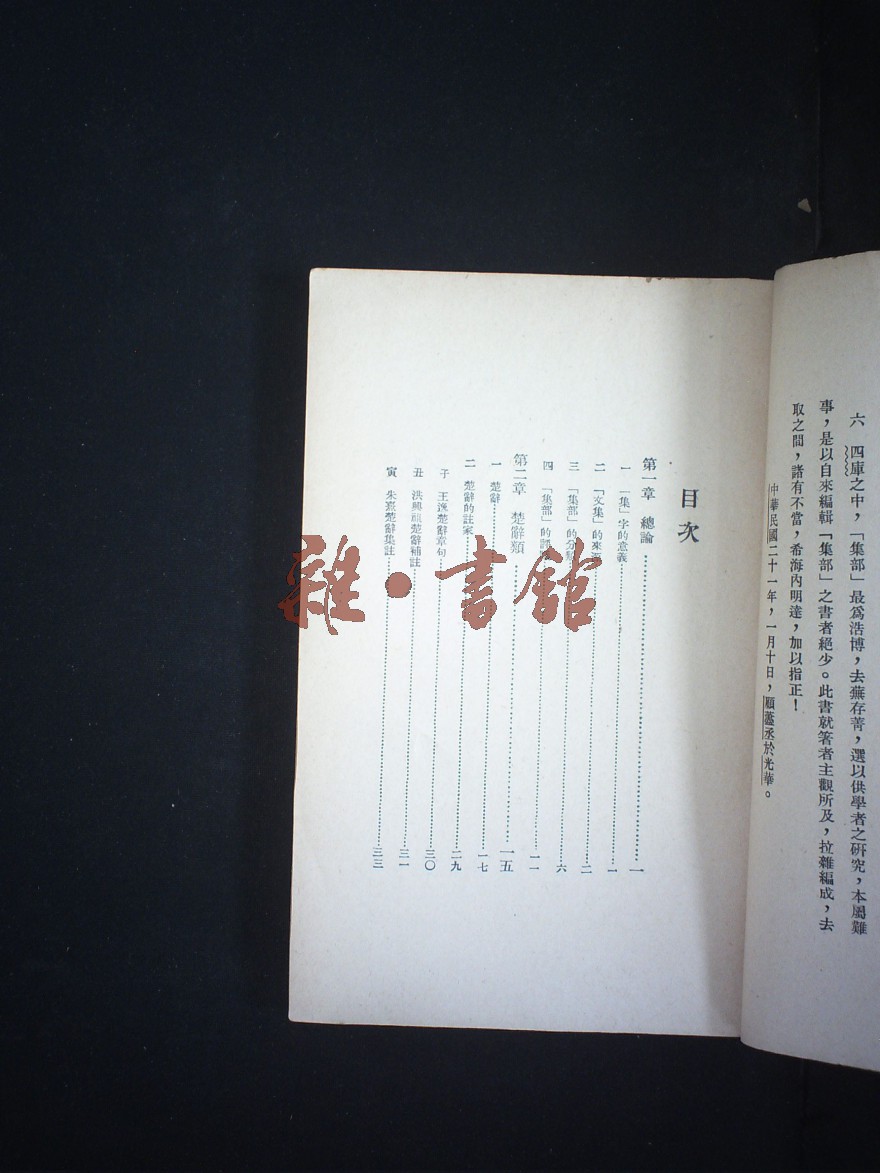 六　四庫之中，「集部」最爲浩博，去蕪存菁，選以供學者之研究，本屬難
事，是以自來編輯「集部」之書者絕少。此書就著者主觀所及，拉雜編成，去
取之間，諸有不當，希海內明達，加以指正！
中華民國二十一年，一月十日，顧藎丞於光華。
目次
第一章　總論……一
一　「集」字的意義……一
二　「文集」的來……二
三　「集部」的分類……六
四　「集部」的……一一
第二章　楚辭類……一五
一　楚辭……一七
二　楚辭的註家……二九
子　王逸楚辭章句……三〇
丑　洪興祖楚辭補註……三一
寅　朱熹楚辭集註……三三
雜·書館